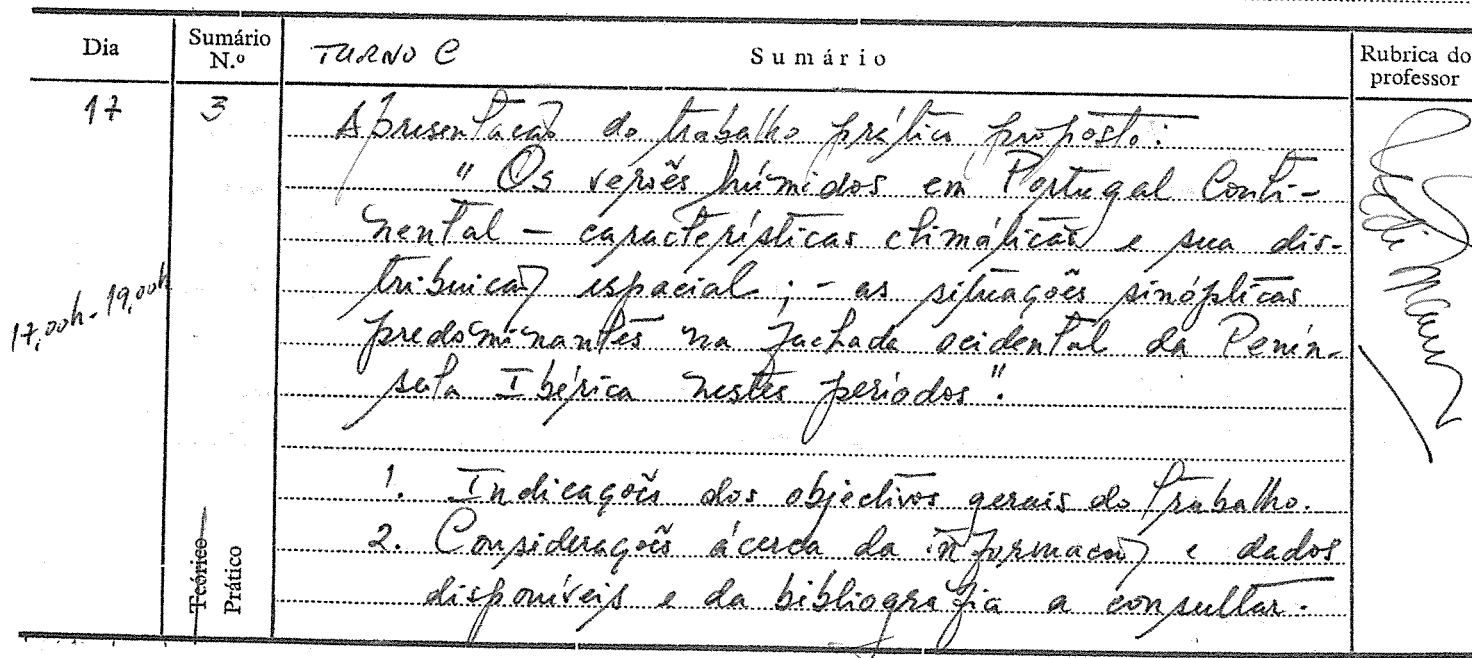 Dia
Sumário N.º
TURNO C
Sumário
Rubrica do professor
17
3
Apresentação do trabalho prático proposto:
" Os verões húmidos em Portugal Conti-
nental – características climáticas e sua dis-
tribuição espacial ; - as situações sinópticas
17,00h - 19,00h
predominantes na fachada ocidental da Penín-
sula Ibérica nestes períodos".
1. Indicações dos objectivos gerais do trabalho.
2. Considerações ácerca da informação e dados
disponíveis e da bibliografia a consultar.
Teórico
Prático